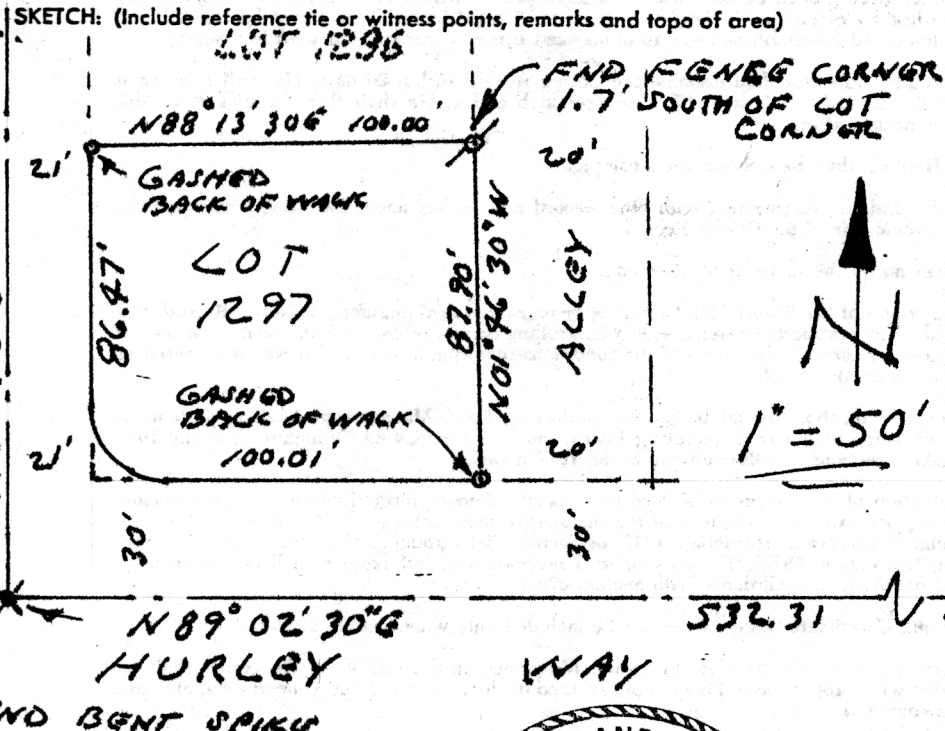 SKETCH: (Include reference tie or witness points, remarks and topo of area)
LOT 1296
FND FENCE CORNER
1.7' SOUTH OF LOT
CORNER
N88° 13 30E 100.00
21'
20'
GASHED
BACK OF WALK
LOT
1297
86.47'
87.90'
N01° 46' 30" W
ALLEY
N
1" = 50'
GASHED
BACK OF WALK
100.01'
21'
20'
30'
30'
N89° 02' 30" E
532.31
HURLEY WAY
ND BENT SPIKE
AND